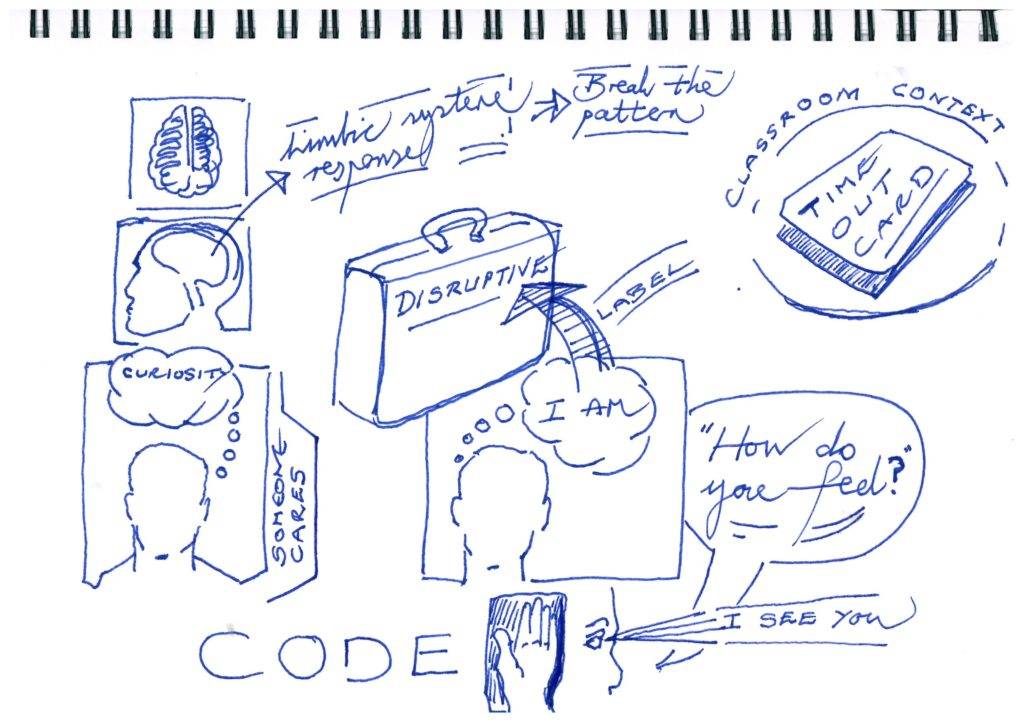 Limbic system
response
Break the
pattern
CLASSROOM CONTEXT
TIME
OUT
CARD
DISRUPTIVE
LABEL
CURIOSITY
I AM
SOMEONE
CARES
"How do
you feel?"
I SEE YOU
CODE